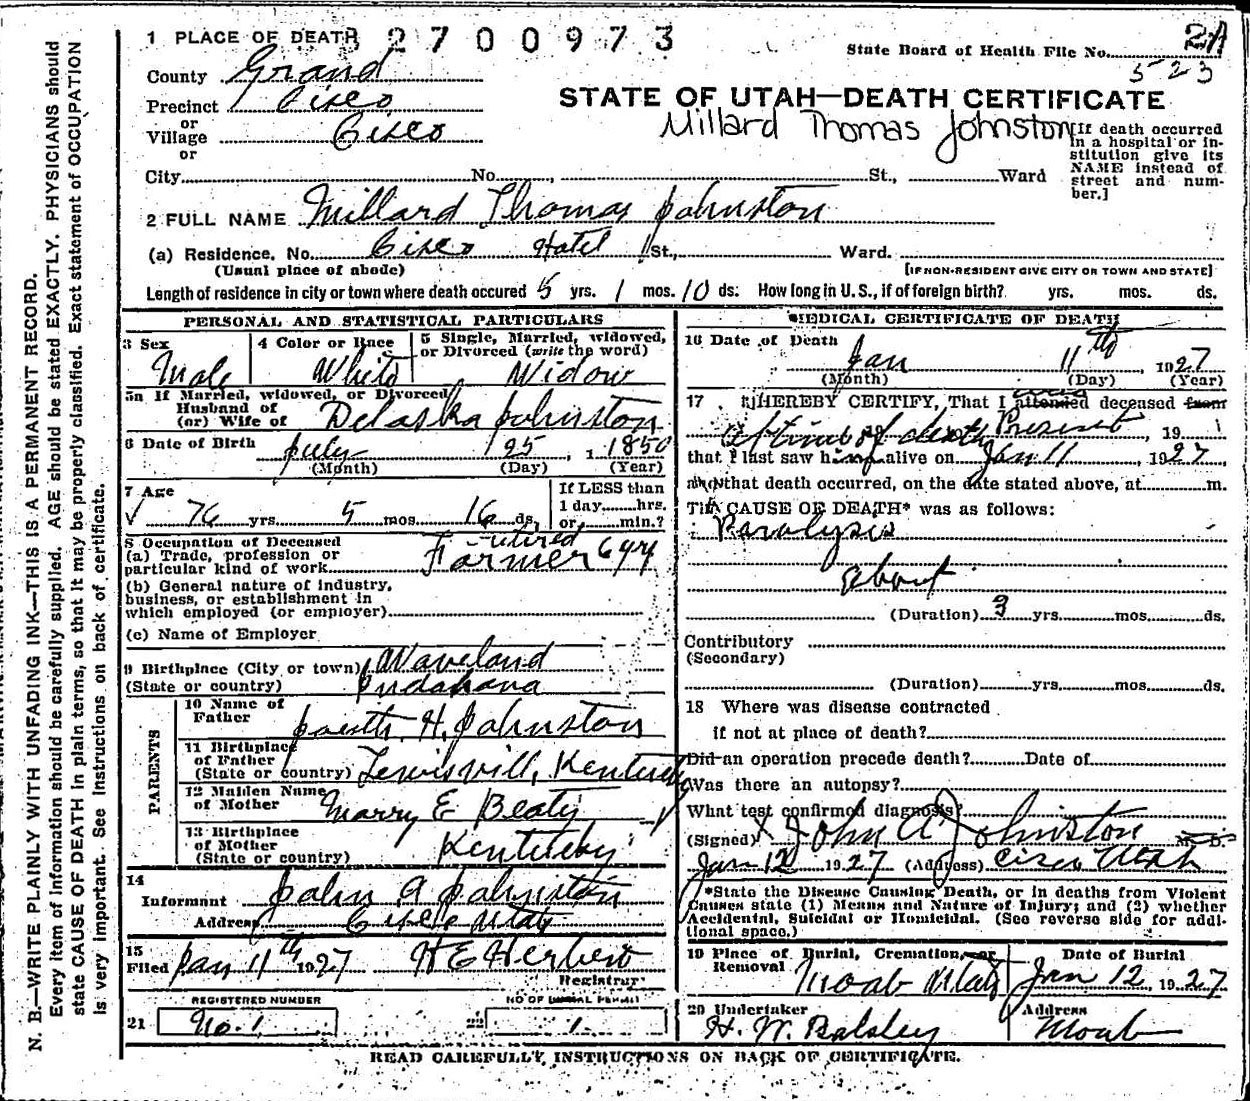 1 PLACE OF DEATH 2700973
State Board of Health File No. 2A
523
County Grand
Precinct Cisco
or
Village Cisco
or
STATE OF UTAH—DEATH CERTIFICATE
Millard Thomas Johnston
[If death occurred in a hospital or institution give its NAME instead of street and number.]
City No. , St., Ward
2 FULL NAME Millard Thomas Johnston
(a) Residence. No. Cisco Hotel St., Ward.
(Usual place of abode) [IF NON-RESIDENT GIVE CITY OR TOWN AND STATE]
Length of residence in city or town where death occured 5 yrs. 1 mos. 10 ds. How long in U.S., if of foreign birth? yrs. mos. ds.
PERSONAL AND STATISTICAL PARTICULARS
3 Sex
Male
4 Color or Race
White
5 Single, Married, widowed, or Divorced (write the word)
Widow
5a If Married, widowed, or Divorced
Husband of
(or) Wife of Delaska Johnston
6 Date of Birth July 25, 1850
(Month) (Day) (Year)
7 Age
76 yrs. 5 mos. 16 ds.
If LESS than
1 day hrs.
or min.?
8 Occupation of Deceased
(a) Trade, profession or
particular kind of work retired Farmer 6 yr
(b) General nature of industry,
business, or establishment in
which employed (or employer)
(c) Name of Employer
9 Birthplace (City or town) Waveland
(State or country) Indahana
PARENTS
10 Name of
Father H. Johnston
11 Birthplace
of Father
(State or country) Lewisvill, Kentucky
12 Maiden Name
of Mother Marry E Beaty
13 Birthplace
of Mother
(State or country) Kentucky
14
Informant John A Johnston
Address Cisco Utah
15
Filed Jan 11th 1927 H E Herbert
Registrar
REGISTERED NUMBER
21 No. 1
NO OF BURIAL PERMIT
22 1
MEDICAL CERTIFICATE OF DEATH
16 Date of Death
Jan 11th, 1927
(Month) (Day) (Year)
17 I HEREBY CERTIFY, That I attended was deceased from
at time of death Present, 19
that I last saw him alive on Jan 11, 1927,
and that death occurred, on the date stated above, at m.
The CAUSE OF DEATH* was as follows:
Paralysis
about
(Duration) 3 yrs. mos. ds.
Contributory
(Secondary)
(Duration) yrs. mos. ds.
18 Where was disease contracted
if not at place of death?
Did an operation precede death? Date of
Was there an autopsy?
What test confirmed diagnosis?
(Signed) X John A Johnston M. D.
Jan 12 1927 (Address) Cisco Utah
*State the Disease Causing Death, or in deaths from Violent
Causes state (1) Means and Nature of Injury; and (2) whether
Accidental, Suicidal or Homicidal. (See reverse side for addi-
tional space.)
19 Place of Burial, Cremation, or
Removal Moab Utah
Date of Burial
Jan 12, 1927
20 Undertaker
H. W. Balsley
Address
Moab
READ CAREFULLY INSTRUCTIONS ON BACK OF CERTIFICATE.
N. B.—WRITE PLAINLY WITH UNFADING INK—THIS IS A PERMANENT RECORD.
Every item of information should be carefully supplied. AGE should be stated EXACTLY. PHYSICIANS should
state CAUSE OF DEATH in plain terms, so that it may be properly classified. Exact statement of OCCUPATION
is very important. See Instructions on back of certificate.